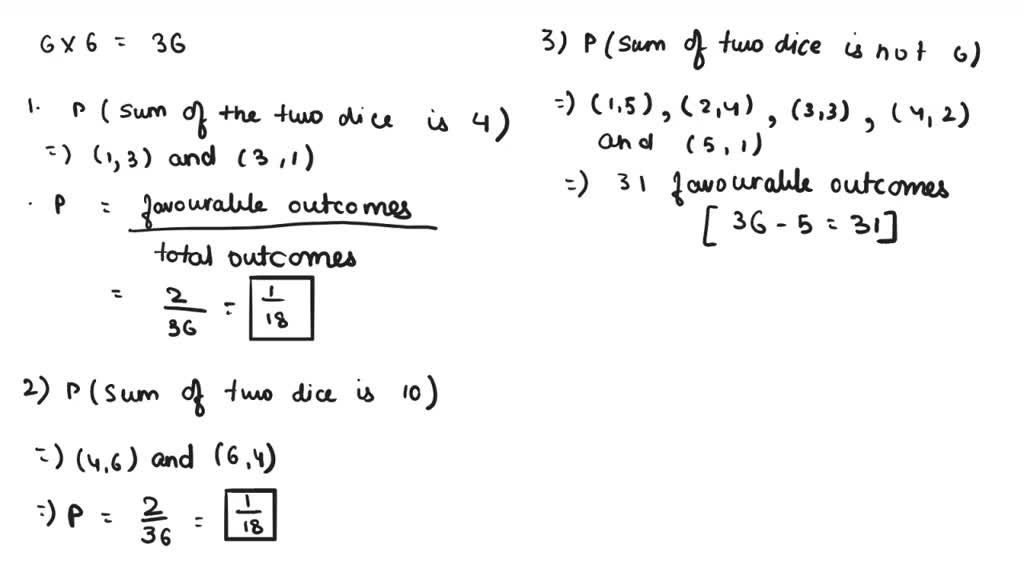 6 x 6 = 36
1. P (sum of the two dice is 4)
=) (1,3) and (3,1)
. P = favourable outcomes
total outcomes
= 2/36 = 1/18
2) P (sum of two dice is 10)
=) (4,6) and (6,4)
=) P = 2/36 = 1/18
3) P (sum of two dice is not 6)
=) (1,5), (2,4), (3,3), (4,2)
and (5,1)
=) 31 favourable outcomes
[36 - 5 = 31]